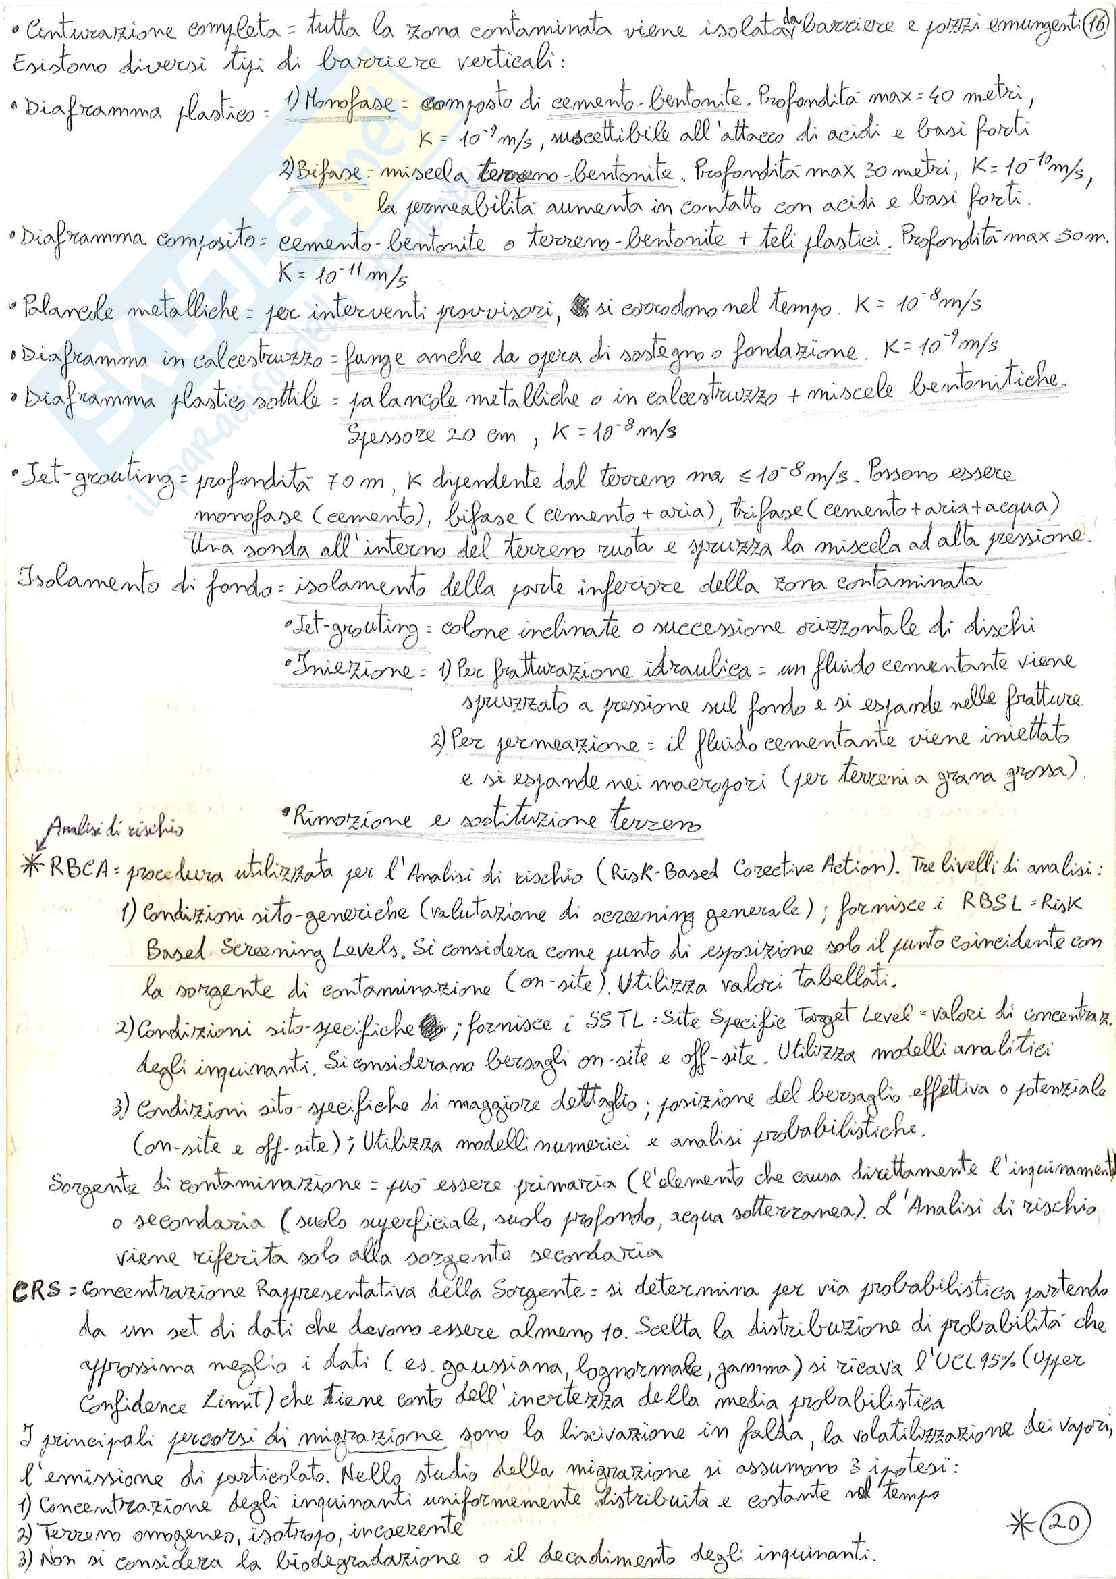 • Cinturazione completa = tutta la zona contaminata viene isolata da barriere e pozzi emungenti 16
Esistono diversi tipi di barriere verticali:
• Diaframma plastico = 1) Monofase = composto di cemento-bentonite. Profondità max = 40 metri,
K = 10⁻⁹ m/s, suscettibile all'attacco di acidi e basi forti
2) Bifase = miscela terreno-bentonite. Profondità max 30 metri, K = 10⁻¹⁰ m/s,
la permeabilità aumenta in contatto con acidi e basi forti.
• Diaframma composito = cemento-bentonite o terreno-bentonite + teli plastici. Profondità max 50 m.
K = 10⁻¹¹ m/s
• Palancole metalliche = per interventi provvisori, si corrodono nel tempo. K = 10⁻⁸ m/s
• Diaframma in calcestruzzo = funge anche da opera di sostegno o fondazione. K = 10⁻⁹ m/s
• Diaframma plastico sottile = palancole metalliche o in calcestruzzo + miscele bentonitiche.
Spessore 20 cm, K = 10⁻⁸ m/s
• Jet-grouting = profondità 70 m, K dipendente dal terreno ma ≤ 10⁻⁸ m/s. Possono essere
monofase (cemento), bifase (cemento + aria), trifase (cemento + aria + acqua)
Una sonda all'interno del terreno ruota e spruzza la miscela ad alta pressione.
Isolamento di fondo = isolamento della parte inferiore della zona contaminata
• Jet-grouting = colone inclinate o successione orizzontale di dischi
• Iniezione = 1) Per fratturazione idraulica = un fluido cementante viene
spruzzato a pressione sul fondo e si espande nelle fratture
2) Per permeazione = il fluido cementante viene iniettato
e si espande nei macropori (per terreni a grana grossa)
• Rimozione e sostituzione terreno
Analisi di rischio
* RBCA = procedura utilizzata per l'Analisi di rischio (Risk-Based Corective Action). Tre livelli di analisi:
1) Condizioni sito-generiche (valutazione di screening generale); fornisce i RBSL = Risk
Based Screening Levels. Si considera come punto di esposizione solo il punto coincidente con
la sorgente di contaminazione (on-site). Utilizza valori tabellati.
2) Condizioni sito-specifiche; fornisce i SSTL = Site Specific Target Level = valori di concentraz.
degli inquinanti. Si considerano bersagli on-site e off-site. Utilizza modelli analitici
3) Condizioni sito-specifiche di maggiore dettaglio; posizione del bersaglio effettiva o potenziale
(on-site e off-site); Utilizza modelli numerici e analisi probabilistiche.
Sorgente di contaminazione = può essere primaria (l'elemento che causa direttamente l'inquinamento
o secondaria (suolo superficiale, suolo profondo, acqua sotterranea). L'Analisi di rischio
viene riferita solo alla sorgente secondaria
CRS = Concentrazione Rappresentativa della Sorgente = si determina per via probabilistica partendo
da un set di dati che devono essere almeno 10. Scelta la distribuzione di probabilità che
approssima meglio i dati (es. gaussiana, lognormale, gamma) si ricava l'UCL 95% (Upper
Confidence Limit) che tiene conto dell'incertezza della media probabilistica
I principali percorsi di migrazione sono la lisciviazione in falda, la volatilizzazione dei vapori,
l'emissione di particolato. Nello studio della migrazione si assumono 3 ipotesi:
1) Concentrazione degli inquinanti uniformemente distribuita e costante nel tempo
2) Terreno omogeneo, isotropo, incoerente
3) Non si considera la biodegradazione o il decadimento degli inquinanti.
* 20